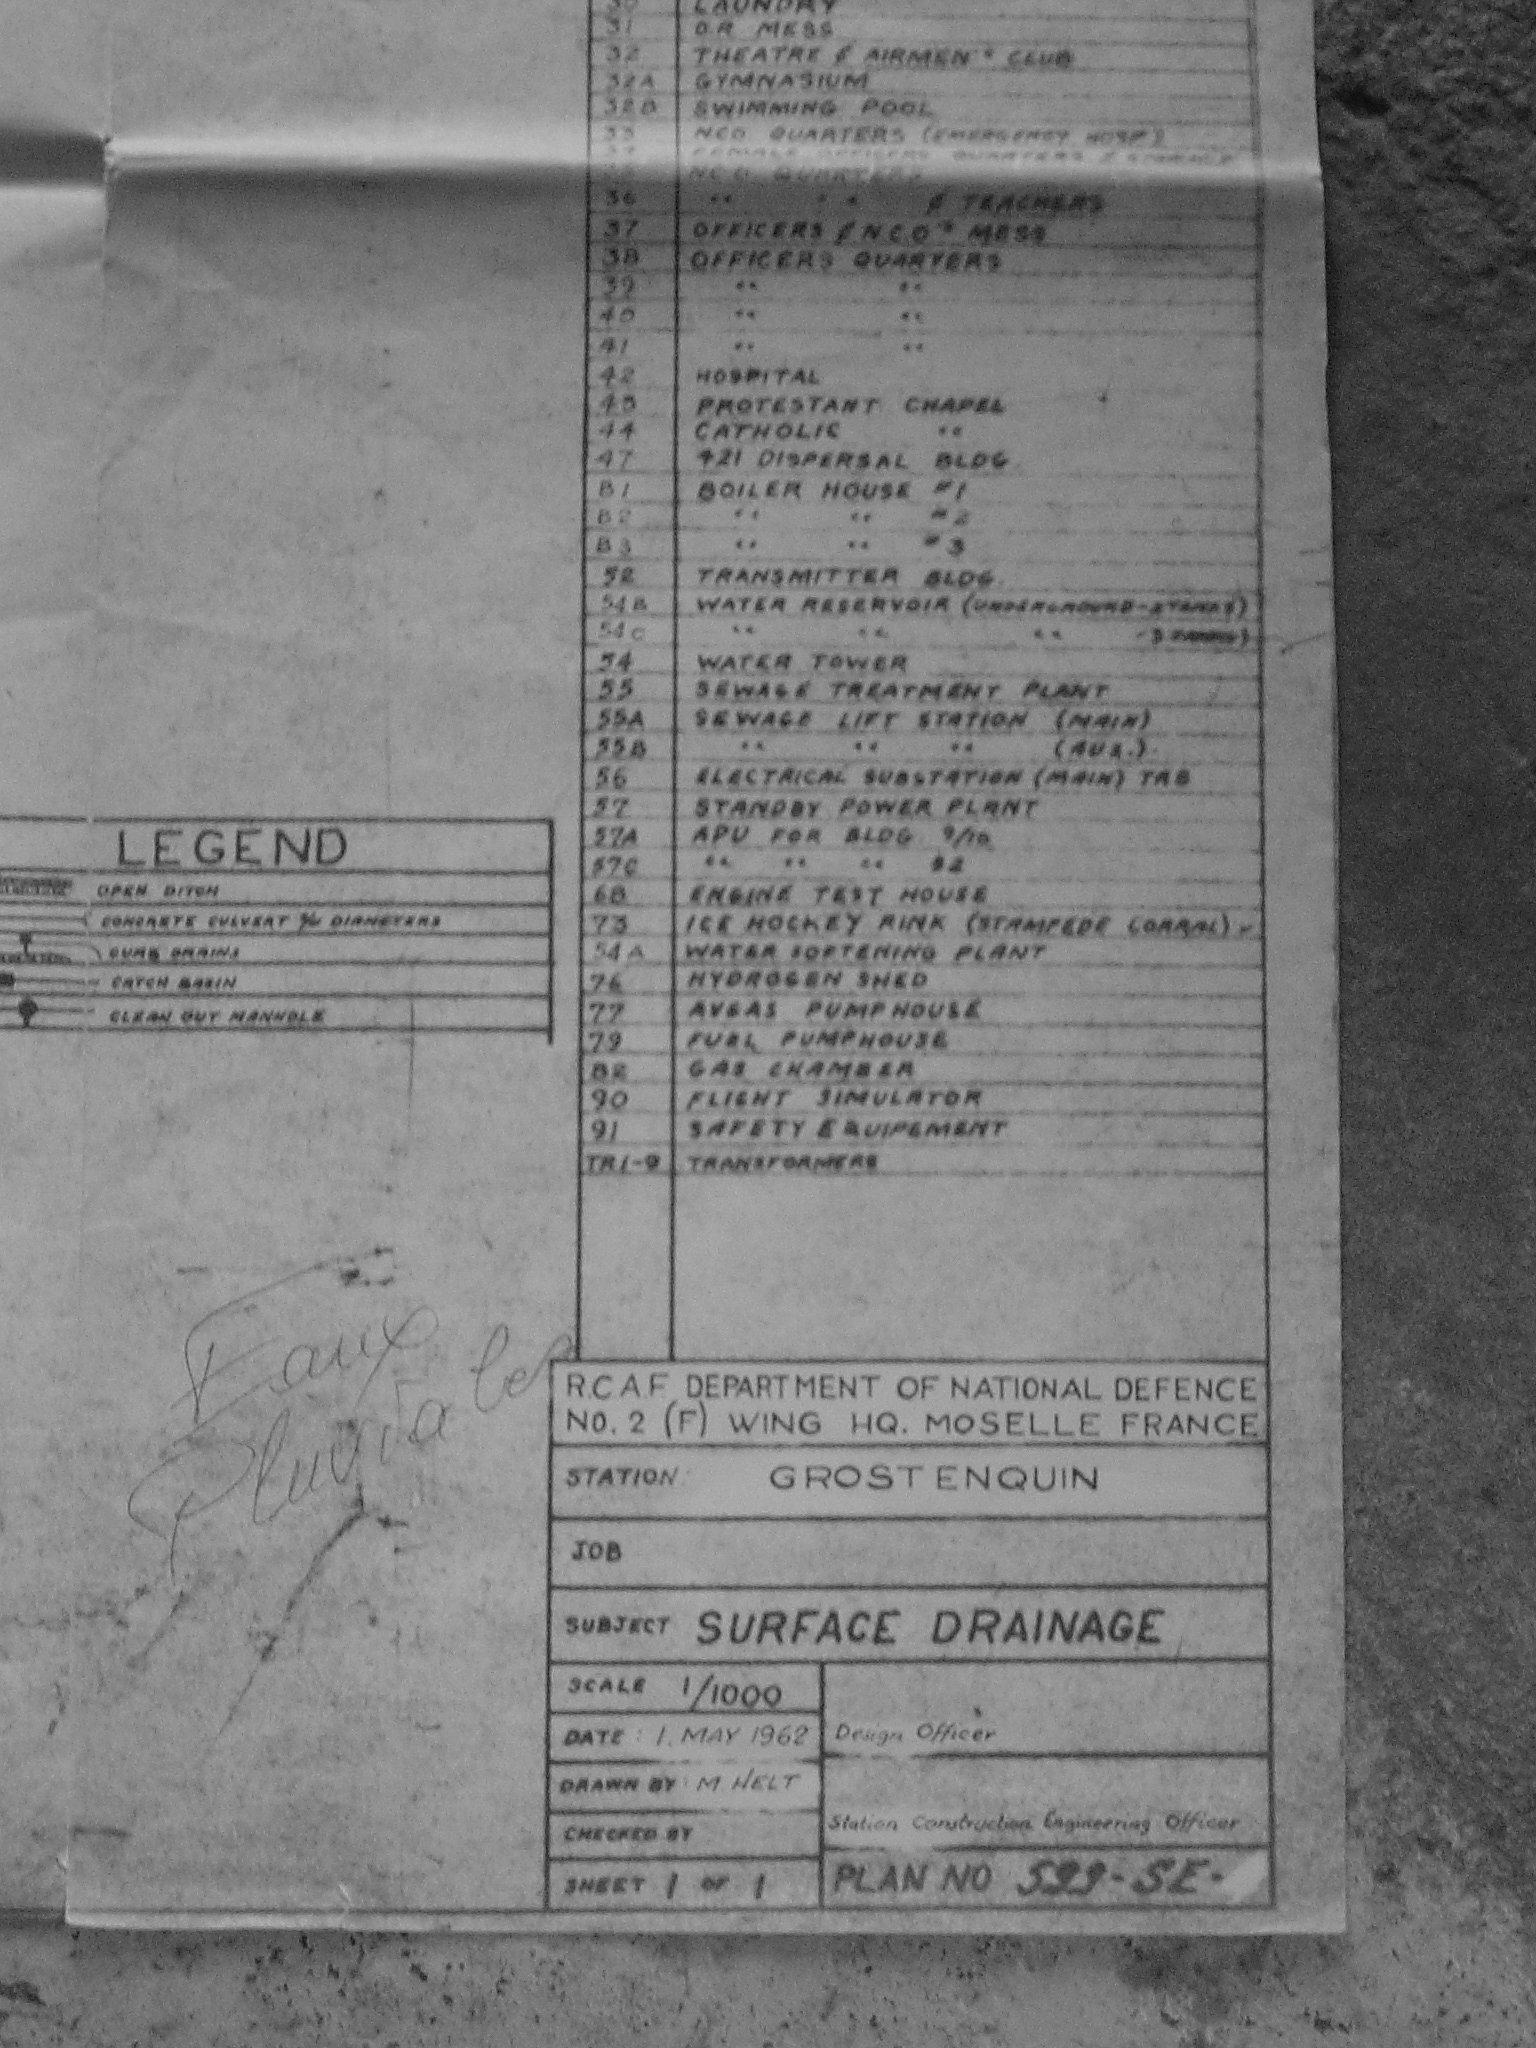 30 LAUNDRY
31 O.R. MESS
32 THEATRE & AIRMEN'S CLUB
32A GYMNASIUM
32B SWIMMING POOL
33 NCO QUARTERS (EMERGENCY HOSP)
FEMALE OFFICERS QUARTERS & STORAGE
NCO QUARTERS
36 " " " & TEACHERS
37 OFFICERS & N.C.O'S MESS
38 OFFICERS QUARTERS
39 " "
40 " "
41 " "
42 HOSPITAL
43 PROTESTANT CHAPEL
44 CATHOLIC "
47 421 DISPERSAL BLDG.
B1 BOILER HOUSE #1
B2 " " #2
B3 " " #3
52 TRANSMITTER BLDG.
54B WATER RESERVOIR (UNDERGROUND-2 TANKS)
54C " " " -3 TANKS)
54 WATER TOWER
55 SEWAGE TREATMENT PLANT
55A SEWAGE LIFT STATION (MAIN)
55B " " " (AUX.)
56 ELECTRICAL SUBSTATION (MAIN)
57 STANDBY POWER PLANT
57A APU FOR BLDG. 9/10
57C " " "
68 ENGINE TEST HOUSE
73 ICE HOCKEY RINK (STAMPEDE CORRAL)
54A WATER SOFTENING PLANT
76 HYDROGEN SHED
77 AVGAS PUMPHOUSE
79 FUEL PUMPHOUSE
82 GAS CHAMBER
90 FLIGHT SIMULATOR
91 SAFETY EQUIPEMENT
TR1-9 TRANSFORMERS
LEGEND
OPEN DITCH
CONCRETE CULVERT DIAMETERS
CURB DRAINS
CATCH BASIN
CLEAN OUT MANHOLE
Eaux
Pluviales
R.C.A.F. DEPARTMENT OF NATIONAL DEFENCE
NO. 2 (F) WING HQ. MOSELLE FRANCE
STATION: GROSTENQUIN
JOB
SUBJECT SURFACE DRAINAGE
SCALE 1/1000
DATE: 1. MAY 1962
Design Officer
DRAWN BY: M HELT
Station Construction Engineering Officer
CHECKED BY
SHEET 1 OF 1
PLAN NO 599-SE-